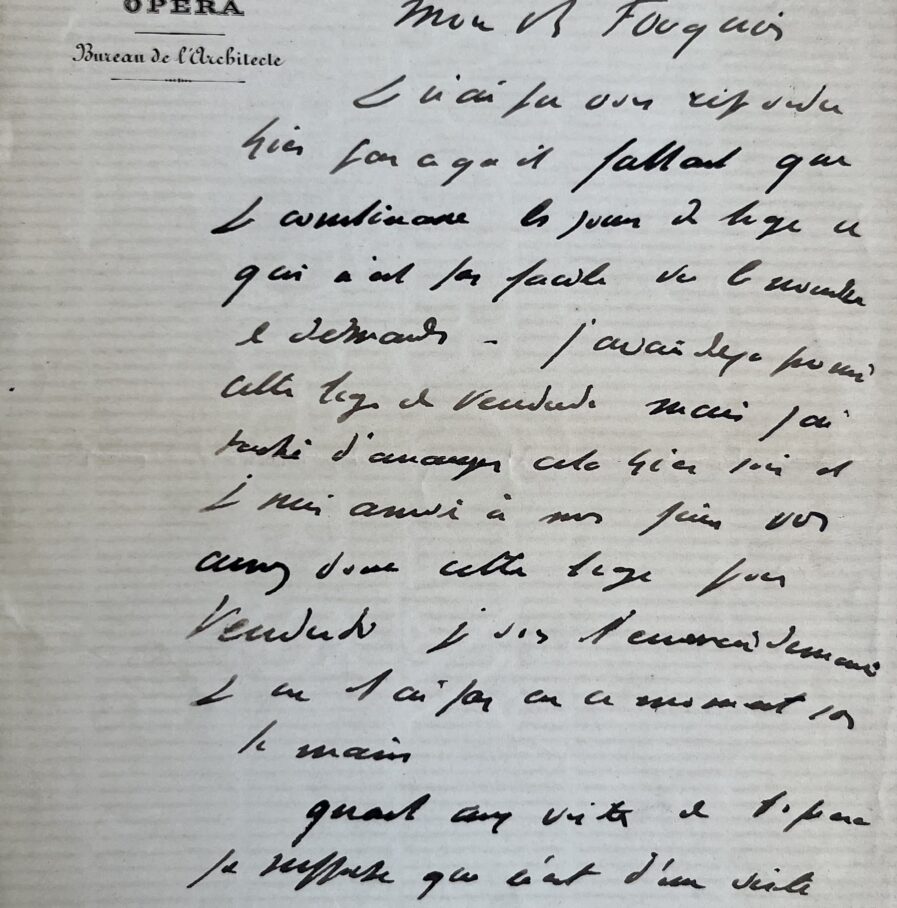 OPERA
Bureau de l'Architecte
Mon ch Fouquier
Je n'ai pu vous répondre
hier parce qu'il fallait que
Je combinasse les jours de loge ce
qui n'est pas facile vu le nombre
de demandes - j'avais deja promis
cette loge de Vendredi mais j'ai
taché d'arranger cela hier soir et
je suis arrivé à mes fins vous
aurez donc cette loge pour
Vendredi je vous l'enverrai demain
Je ne l'ai pas en ce moment sous
la main
quant aux visites de l'opera
je suppose que c'est d'une visite